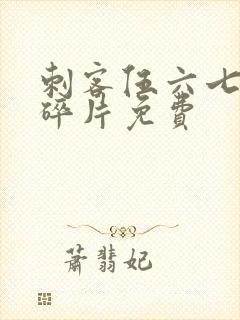 刺客伍六七
碎片免費
蕭翡妃